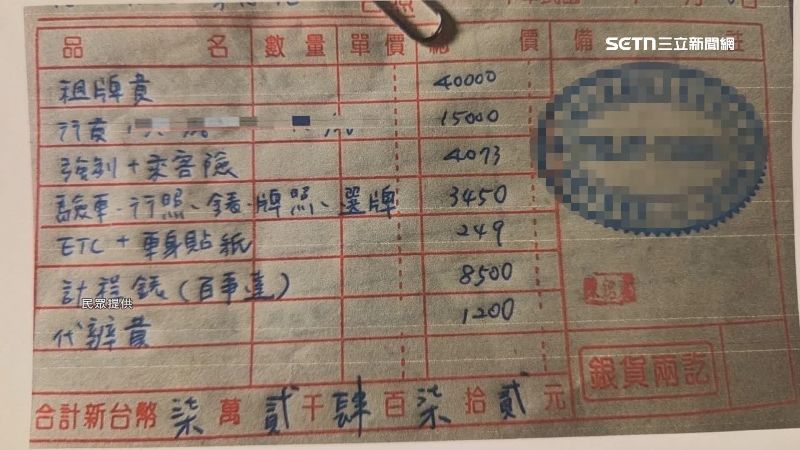 SETN三立新聞網
品名 數量 單價 總價 備註
租牌費 40000
行費 15000
強制+乘客險 4073
驗車、行照、錶、牌照、選牌 3450
ETC+車身貼紙 249
計程錶(百事達) 8500
民眾提供
代辦費 1200
銀貨兩訖
合計新台幣柒萬貳千肆百柒拾貳元